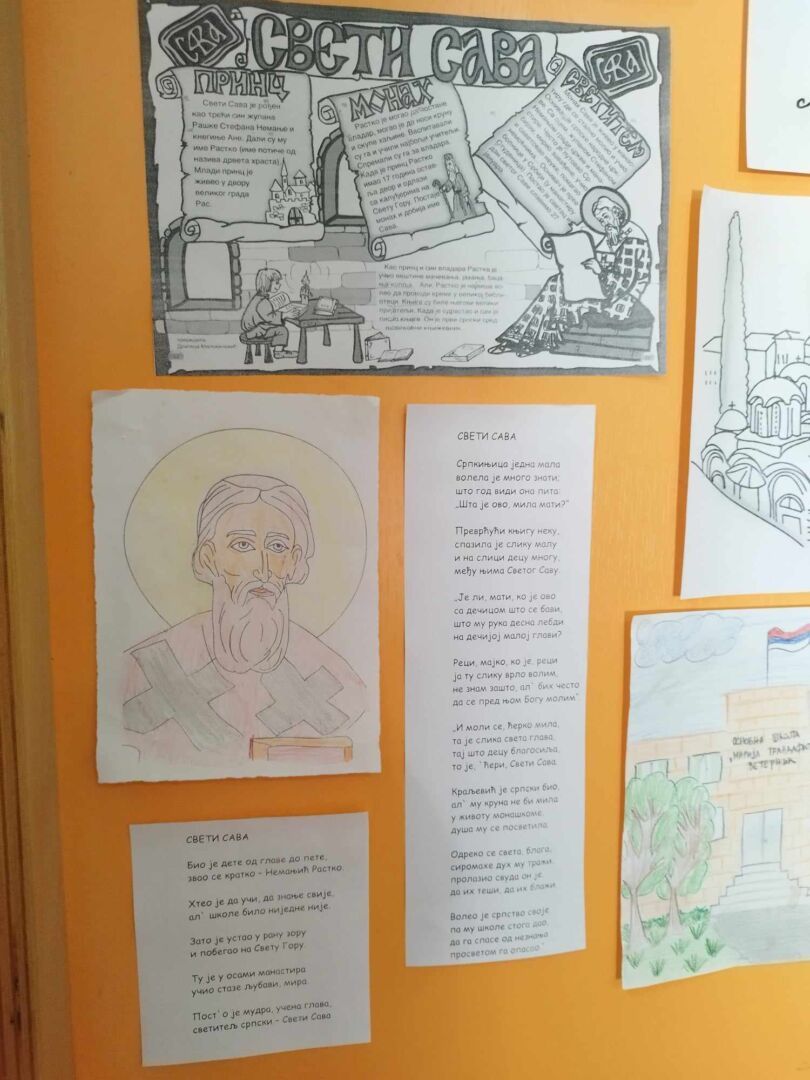 СВЕТИ САВА
САВА
САВА
ПРИНЦ
Свети Сава је рођен
као трећи син жупана
Рашке Стефана Немање и
кнегиње Ане. Дали су му
име Растко (име потиче од
назива дрвета храста)
Млади принц је
живео у двору
великог града
Рас.
МОНАХ
Растко је могао да постане
владар, могао је да носи круну
и скупе хаљине. Васпитавали
су га и учили најбољи учитељи.
Спремали су га за владара.
Када је принц Растко
имао 17 година оста
вља двор и одлази
са калуђерима на
Свету Гору. Постао је
монах и добија име
Сава.
СВЕТИТЕЉ
Као принц и син владара Растко је
учио вештине мачевања, јахања, баца
ња копља. Али, Растко је највише во
лео да проводи време у великој библи
отеци. Књиге су биле његови велики
пријатељи. Када је одрастао и сам је
писао књиге. Он је први српски сред
њовековни књижевник.
СВЕТИ САВА
Српкињица једна мала
волела је много знати;
што год види она пита:
„Шта је ово, мила мати?"
Преврћући књигу неку,
спазила је слику малу
и на слици децу многу,
међу њима Светог Саву.
„Је ли, мати, ко је ово
са дечицом што се бави,
што му рука десна лебди
на дечијој малој глави?
Реци, мајко, ко је, реци
ја ту слику врло волим,
не знам зашто, ал` бих често
да се пред њом Богу молим".
„И моли се, ћерко мила,
та је слика света глава,
тај што децу благосиља,
то је, `ћери, Свети Сава.
Краљевић је српски био,
ал` му круна не би мила
у животу монашкоме
душа му се посветила.
Одреко се света, блага,
сиромахе дух му тражи,
пролазио свуда он је
да их теши, да их блажи.
Волео је српство своје
па му школе стога дао,
да га спасе од незнања
просветом га опасао.
СВЕТИ САВА
Био је дете од главе до пете,
звао се кратко - Немањић Растко.
Хтео је да учи, да знање свије,
ал` школе било ниједне није.
Зато је устао у рану зору
и побегао на Свету Гору.
Ту је у осами манастира
учио стазе љубави, мира.
Пост`о је мудра, учена глава,
светитељ српски - Свети Сава
ОСНОВНА ШКОЛА
„МАРИЈА ТРАНДАФИ
ВЕТЕРНИК